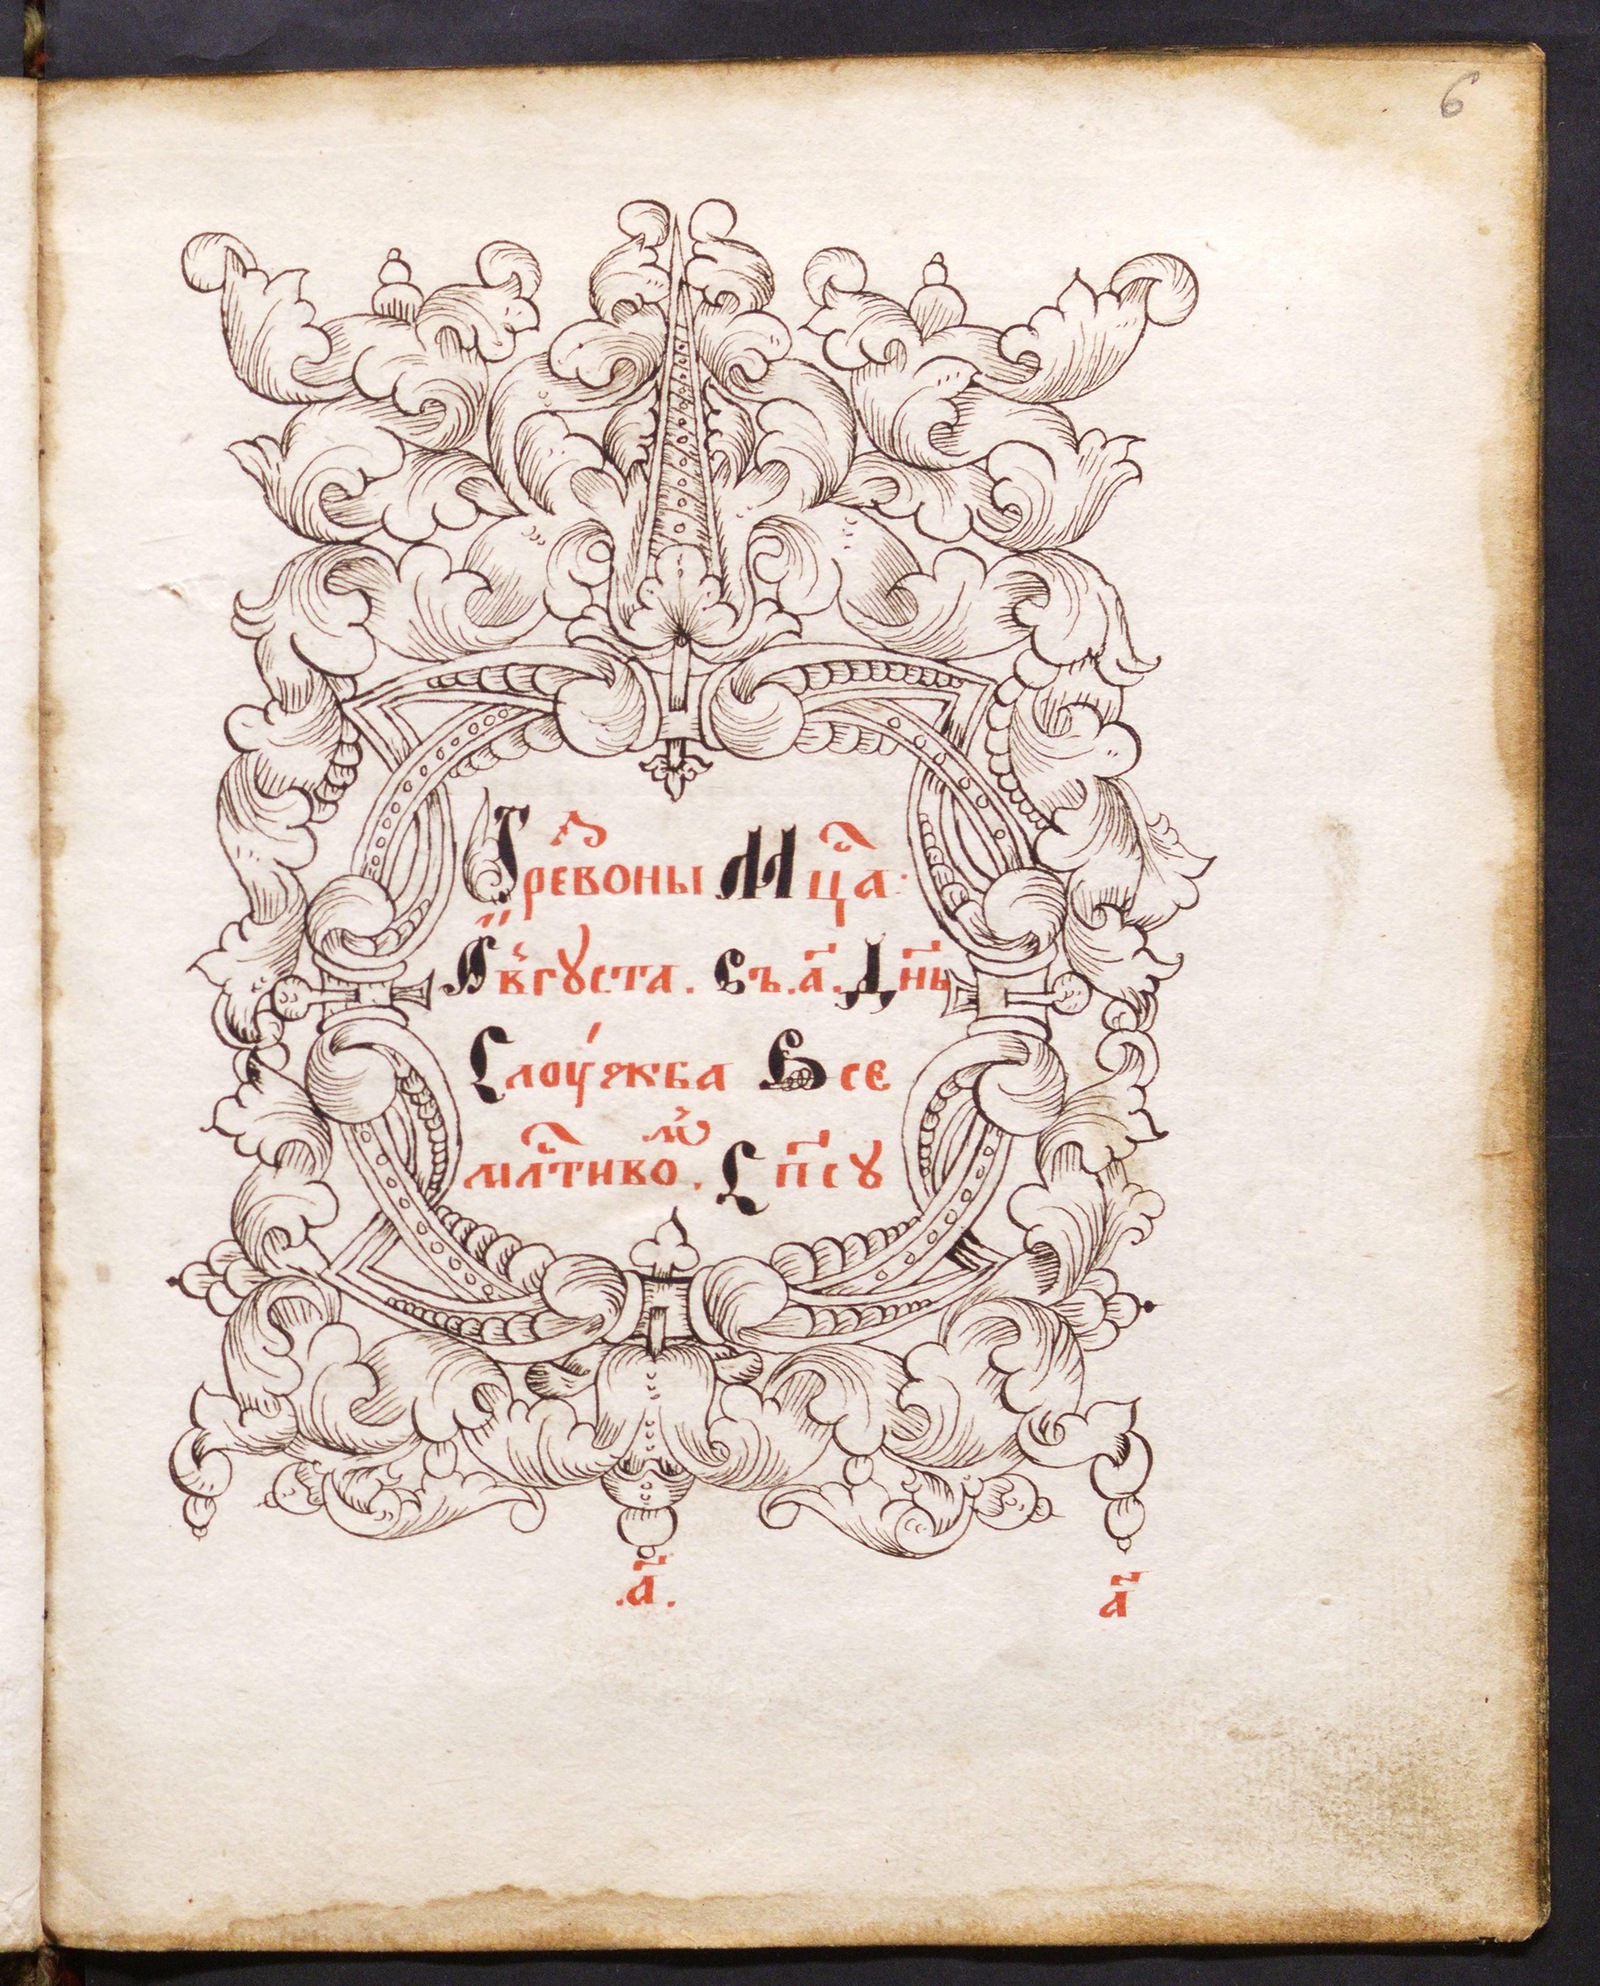 6
Трезвоны Мцⷭ҇а·
А҆́в҆гꙋста. Въ.а҃.Дн҃ь
Слоу́жба Все
млⷭ҇тивоⷨꙋ. Сп҃сꙋ
.а҃. а҃